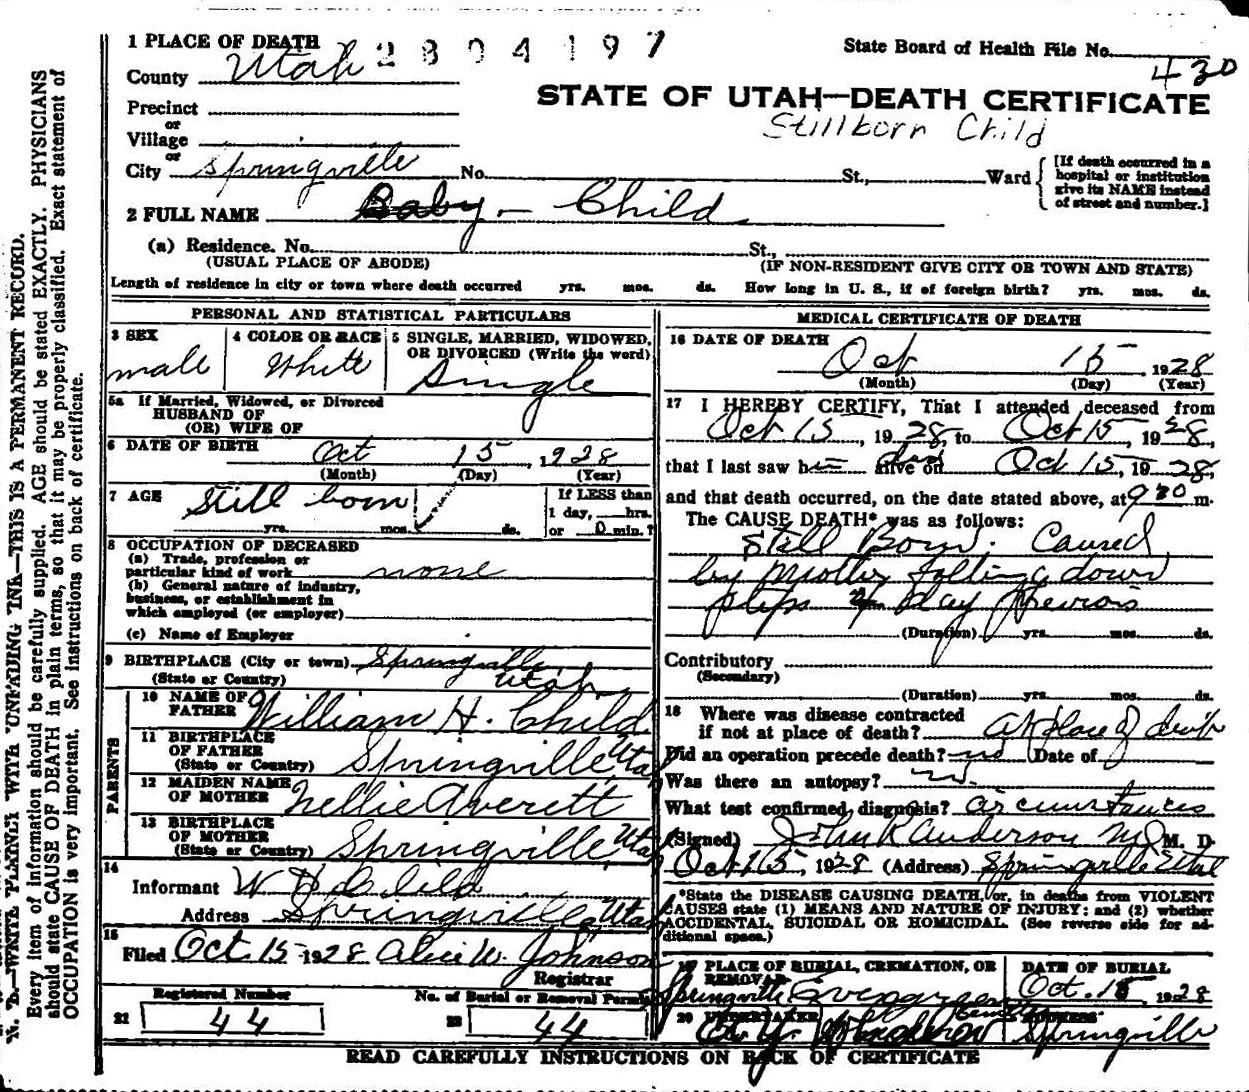 1 PLACE OF DEATH 2804197 State Board of Health File No. 430
County Utah
STATE OF UTAH—DEATH CERTIFICATE
Precinct
or
Stillborn Child
Village
or
City Springville No. St., Ward
[If death occurred in a
hospital or institution
give its NAME instead
of street and number.]
2 FULL NAME Baby - Child
(a) Residence. No. St.,
(USUAL PLACE OF ABODE) (IF NON-RESIDENT GIVE CITY OR TOWN AND STATE)
Length of residence in city or town where death occurred yrs. mos. ds. How long in U. S., if of foreign birth? yrs. mos. ds.
PERSONAL AND STATISTICAL PARTICULARS
3 SEX male
4 COLOR OR RACE White
5 SINGLE, MARRIED, WIDOWED,
OR DIVORCED (Write the word)
Single
5a If Married, Widowed, or Divorced
HUSBAND OF
(OR) WIFE OF
6 DATE OF BIRTH Oct 15, 1928
(Month) (Day) (Year)
7 AGE Still born
yrs. mos. ds.
If LESS than
1 day, hrs.
or 0 min.?
8 OCCUPATION OF DECEASED
(a) Trade, profession or
particular kind of work none
(b) General nature of industry,
business, or establishment in
which employed (or employer)
(c) Name of Employer
9 BIRTHPLACE (City or town) Springville,
(State or Country) Utah
PARENTS
10 NAME OF
FATHER William H. Child
11 BIRTHPLACE
OF FATHER
(State or Country) Springville, Utah
12 MAIDEN NAME
OF MOTHER Nellie Averett
13 BIRTHPLACE
OF MOTHER
(State or Country) Springville, Utah
14
Informant W H Child
Address Springville Utah
15
Filed Oct. 15 1928 Alice W. Johnson
Registrar
Registered Number No. of Burial or Removal Permit
21 44 22 44
MEDICAL CERTIFICATE OF DEATH
16 DATE OF DEATH
Oct 15, 1928
(Month) (Day) (Year)
17 I HEREBY CERTIFY, That I attended deceased from
Oct 15, 1928, to Oct 15, 1928,
that I last saw h alive on Oct 15, 1928,
and that death occurred, on the date stated above, at 9 30 m.
The CAUSE DEATH* was as follows:
Still Born. Caused
by mother falling down
steps day previous
(Duration) yrs. mos. ds.
Contributory
(Secondary)
(Duration) yrs. mos. ds.
18 Where was disease contracted
if not at place of death? At place of death
Did an operation precede death? no Date of
Was there an autopsy? no.
What test confirmed diagnosis? circumstances
(Signed) John R Anderson MD M. D.
Oct 15, 1928 (Address) Springville Utah
*State the DISEASE CAUSING DEATH, or, in deaths from VIOLENT
CAUSES state (1) MEANS AND NATURE OF INJURY; and (2) whether
ACCIDENTAL, SUICIDAL OR HOMICIDAL. (See reverse side for ad-
ditional space.)
19 PLACE OF BURIAL, CREMATION, OR
REMOVAL
Springville Evergreen
DATE OF BURIAL
Oct. 15 1928
20 UNDERTAKER
ADDRESS
Springville
READ CAREFULLY INSTRUCTIONS ON BACK OF CERTIFICATE
N. B.—WRITE PLAINLY WITH UNFADING INK—THIS IS A PERMANENT RECORD.
Every item of information should be carefully supplied. AGE should be stated EXACTLY. PHYSICIANS
should state CAUSE OF DEATH in plain terms, so that it may be properly classified. Exact statement of
OCCUPATION is very important. See instructions on back of certificate.